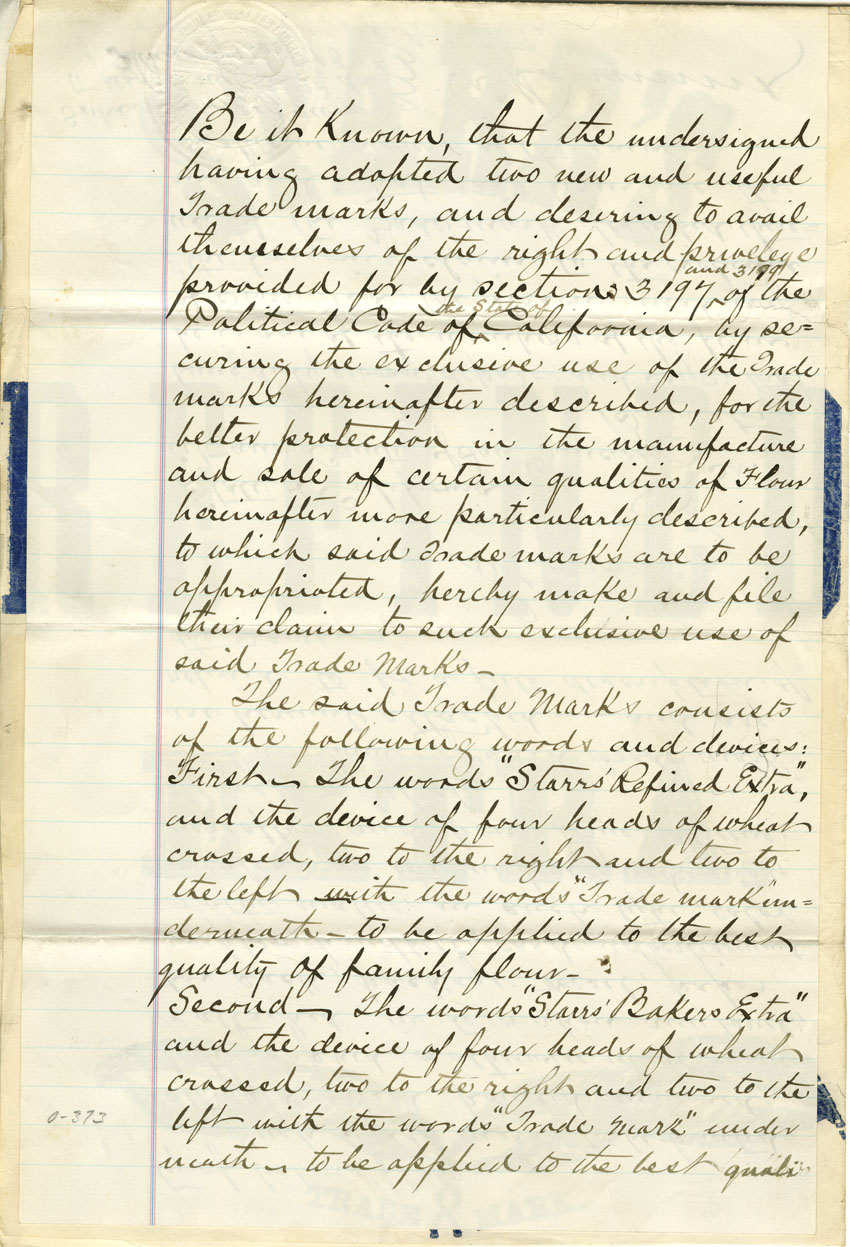 Be it Known, that the undersigned
having adopted two new and useful
Trade marks, and desering to avail
themselves of the right and privelege
and 3199
provided for by sections 3197 of the
the State of
Political Code of California, by se=
curing the exclusive use of the Trade
marks hereinafter described, for the
better protection in the manufacture
and sale of certain qualities of Flour
hereinafter more particularly described,
to which said Trade marks are to be
appropriated, hereby make and file
their claim to such exclusive use of
said Trade Marks -
The said Trade Marks consists
of the following words and devices:
First - The words "Starrs' Refined Extra",
and the device of four heads of wheat
crossed, two to the right and two to
the left with the words "Trade mark" un=
derneath - to be applied to the best
quality of family flour -
Second - The words "Starrs' Bakers Extra"
and the device of four heads of wheat
crossed, two to the right and two to the
left with the words "Trade Mark" under
neath - to be applied to the best quali
0-373